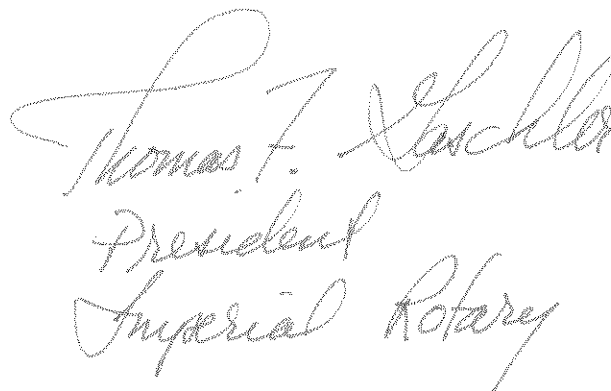 Thomas F.
President
Imperial Rotary